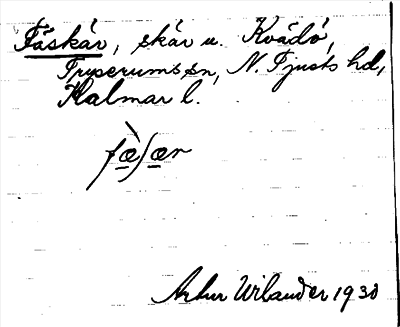 Fäskär, skär u. Kvädö,
Tryserums sn, N. Tjusts hd,
Kalmar l.
fæ̀sær
Artur Wilander 1930